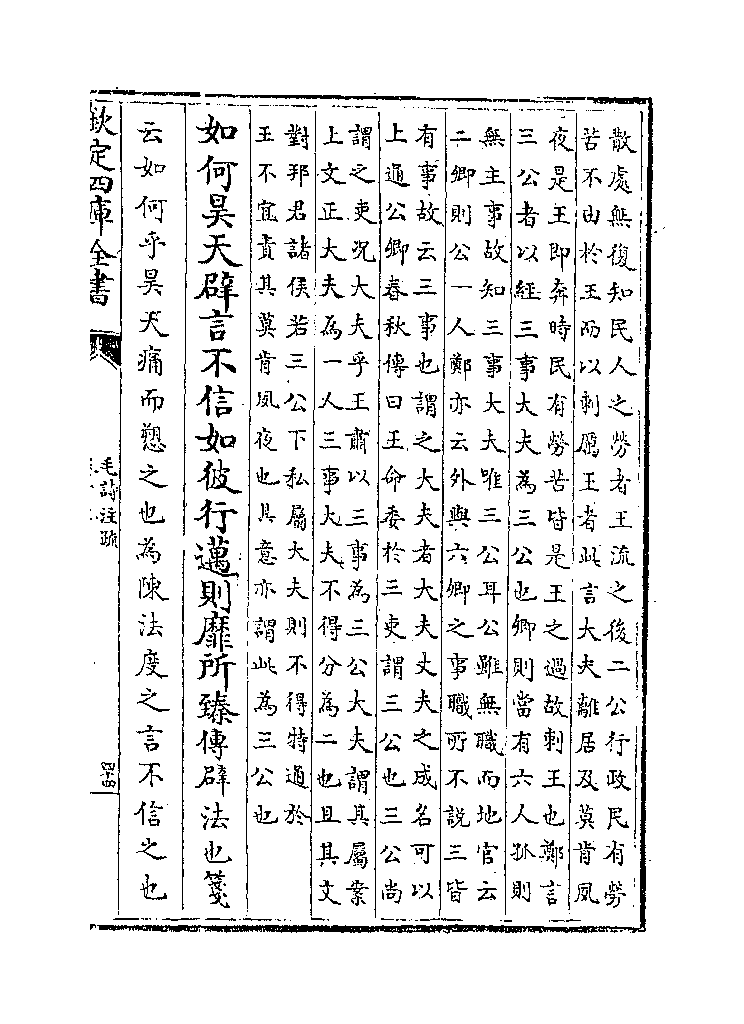 散處無復知民人之勞者王流之後二公行政民有勞
苦不由於王而以刺厲王者此言大夫離居及莫肯夙
夜是王即奔時民有勞苦皆是王之過故刺王也鄭言
三公者以經三事大夫為三公也卿則當有六人孤則
無主事故知三事大夫唯三公耳公雖無職而地官云
二卿則公一人鄭亦云外與六卿之事職所不説三皆
有事故云三事也謂之大夫者大夫丈夫之成名可以
上通公卿春秋傳曰王命委於三吏謂三公也三公尚
謂之吏况大夫乎王肅以三事為三公大夫謂其屬案
上文正大夫為一人三事大夫不得分為二也且其文
對邦君諸侯若三公下私屬大夫則不得特通於
王不宜責其莫肯夙夜也其意亦謂此為三公也
如何昊天辟言不信如彼行邁則靡所臻傳辟法也箋
云如何乎昊天痛而愬之也為陳法度之言不信之也
欽定四庫全書
毛詩注疏
四十四